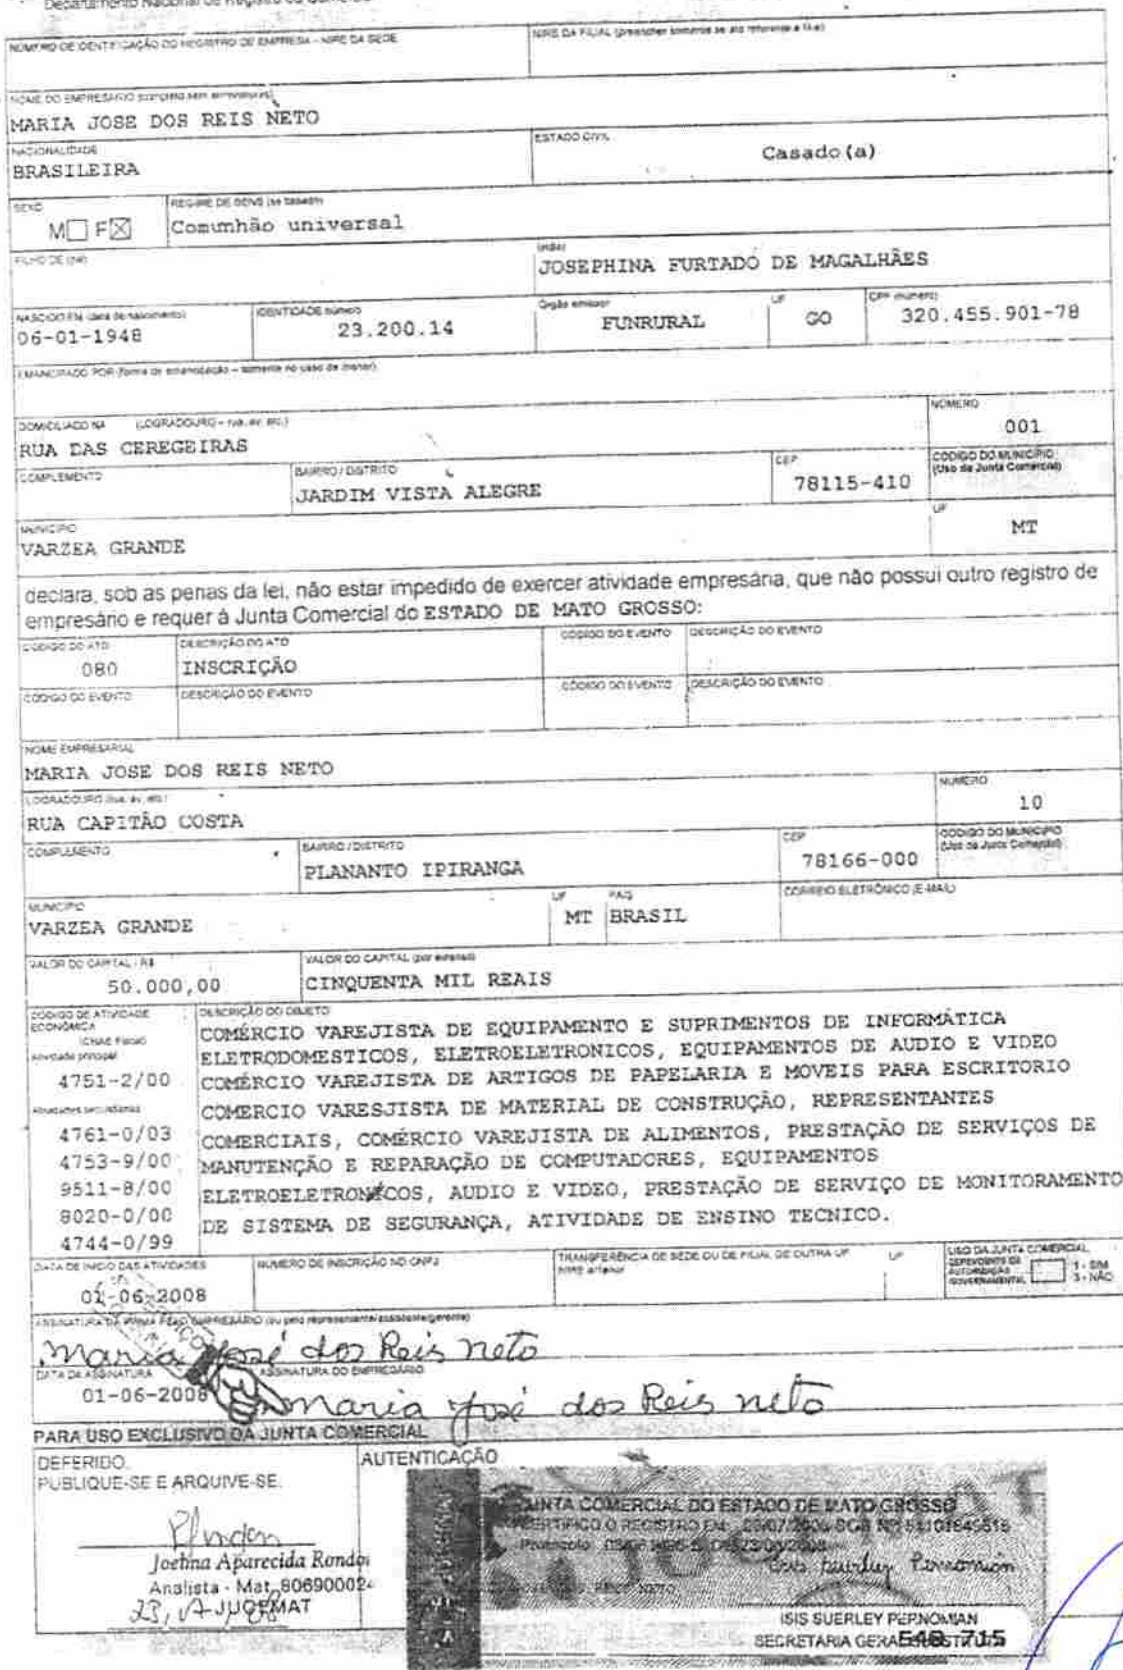 Departamento Nacional de Registro do Comércio
NÚMERO DE IDENTIFICAÇÃO DO REGISTRO DE EMPRESA - NIRE DA SEDE
NIRE DA FILIAL (preencher somente se ato referente a filial)
NOME DO EMPRESÁRIO (completo sem abreviaturas)
MARIA JOSE DOS REIS NETO
NACIONALIDADE
BRASILEIRA
ESTADO CIVIL
Casado(a)
SEXO
M☐ F☒
REGIME DE BENS (se casado)
Comunhão universal
FILHO DE (pai)
(mãe)
JOSEPHINA FURTADO DE MAGALHÃES
NASCIDO EM (data de nascimento)
06-01-1948
IDENTIDADE número
23.200.14
Órgão emissor
FUNRURAL
UF
GO
CPF (número)
320.455.901-78
EMANCIPADO POR (forma de emancipação - somente no caso de menor)
DOMICILIADO NA (LOGRADOURO - rua, av, etc.)
RUA DAS CEREGEIRAS
NÚMERO
001
COMPLEMENTO
BAIRRO / DISTRITO
JARDIM VISTA ALEGRE
CEP
78115-410
CODIGO DO MUNICÍPIO
(Uso da Junta Comercial)
MUNICÍPIO
VARZEA GRANDE
UF
MT
declara, sob as penas da lei, não estar impedido de exercer atividade empresária, que não possui outro registro de
empresário e requer à Junta Comercial do ESTADO DE MATO GROSSO:
CÓDIGO DO ATO
080
DESCRIÇÃO DO ATO
INSCRIÇÃO
CÓDIGO DO EVENTO
DESCRIÇÃO DO EVENTO
CÓDIGO DO EVENTO
DESCRIÇÃO DO EVENTO
CÓDIGO DO EVENTO
DESCRIÇÃO DO EVENTO
NOME EMPRESARIAL
MARIA JOSE DOS REIS NETO
LOGRADOURO (rua, av, etc.)
RUA CAPITÃO COSTA
NUMERO
10
COMPLEMENTO
BAIRRO / DISTRITO
PLANANTO IPIRANGA
CEP
78166-000
CODIGO DO MUNICÍPIO
(Uso da Junta Comercial)
MUNICÍPIO
VARZEA GRANDE
UF
MT
PAÍS
BRASIL
CORREIO ELETRÔNICO (E-MAIL)
VALOR DO CAPITAL - R$
50.000,00
VALOR DO CAPITAL (por extenso)
CINQUENTA MIL REAIS
CÓDIGO DE ATIVIDADE
ECONÔMICA
(CNAE Fiscal)
Atividade principal
4751-2/00
Atividades secundárias
4761-0/03
4753-9/00
9511-8/00
8020-0/00
4744-0/99
DESCRIÇÃO DO OBJETO
COMÉRCIO VAREJISTA DE EQUIPAMENTO E SUPRIMENTOS DE INFORMÁTICA
ELETRODOMESTICOS, ELETROELETRONICOS, EQUIPAMENTOS DE AUDIO E VIDEO
COMÉRCIO VAREJISTA DE ARTIGOS DE PAPELARIA E MOVEIS PARA ESCRITORIO
COMERCIO VARESJISTA DE MATERIAL DE CONSTRUÇÃO, REPRESENTANTES
COMERCIAIS, COMÉRCIO VAREJISTA DE ALIMENTOS, PRESTAÇÃO DE SERVIÇOS DE
MANUTENÇÃO E REPARAÇÃO DE COMPUTADORES, EQUIPAMENTOS
ELETROELETRONICOS, AUDIO E VIDEO, PRESTAÇÃO DE SERVIÇO DE MONITORAMENTO
DE SISTEMA DE SEGURANÇA, ATIVIDADE DE ENSINO TECNICO.
DATA DE INICIO DAS ATIVIDADES
01-06-2008
NUMERO DE INSCRIÇÃO NO CNPJ
TRANSFERÊNCIA DE SEDE OU DE FILIAL DE OUTRA UF
NIRE anterior
UF
USO DA JUNTA COMERCIAL
DEPENDENTE DE
AUTORIZAÇÃO
GOVERNAMENTAL
1 - SIM
3 - NÃO
ASSINATURA DA FIRMA PELO EMPRESÁRIO (ou pelo representante/assistente/gerente)
Maria José dos Reis neto
DATA DA ASSINATURA
01-06-2008
ASSINATURA DO EMPRESÁRIO
maria José dos Reis neto
PARA USO EXCLUSIVO DA JUNTA COMERCIAL
DEFERIDO.
PUBLIQUE-SE E ARQUIVE-SE.
Joelina Aparecida Rondon
Analista - Mat. 80690002
JUCEMAT
AUTENTICAÇÃO
JUNTA COMERCIAL DO ESTADO DE MATO GROSSO
CERTIFICO O REGISTRO EM
ISIS SUERLEY PERNOMIAN
SECRETARIA GERAL
549 715